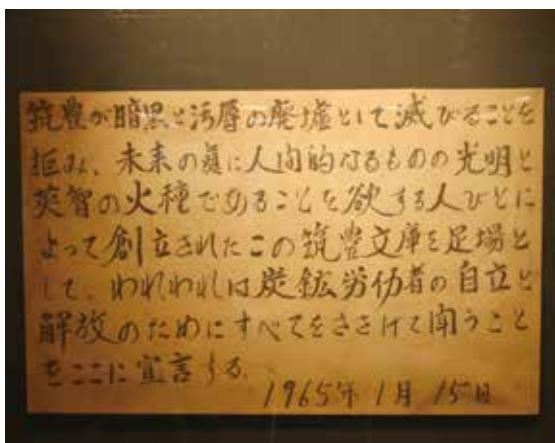 筑豊が暗黒と汚辱の廃墟として滅びることを
拒み、未来の真に人間的なるものの光明と
英智の火種であることを欲する人びとに
よって創立されたこの筑豊文庫を足場と
して、われわれは炭鉱労仂者の自立と
解放のためにすべてをささげて闘うこと
をここに宣言する。
1965年1月15日